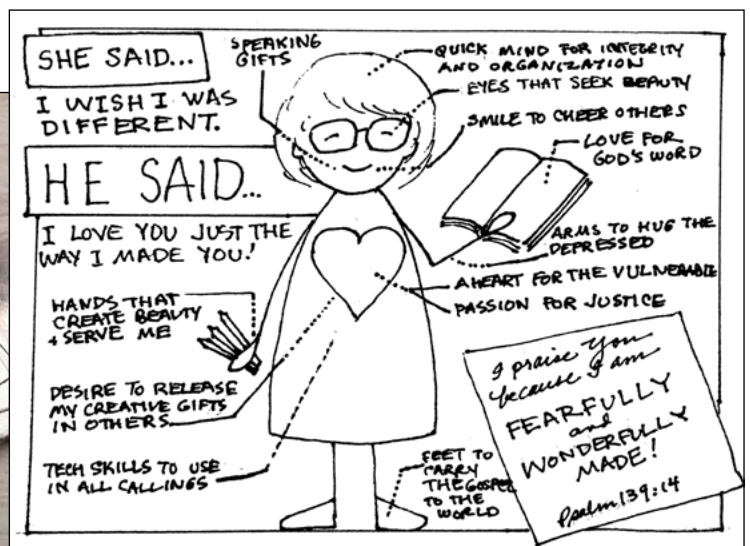 SHE SAID...
I WISH I WAS
DIFFERENT.
HE SAID...
I LOVE YOU JUST THE
WAY I MADE YOU!
SPEAKING
GIFTS
QUICK MIND FOR INTEGRITY
AND ORGANIZATION
EYES THAT SEEK BEAUTY
SMILE TO CHEER OTHERS
LOVE FOR
GOD'S WORD
ARMS TO HUG THE
DEPRESSED
A HEART FOR THE VULNERABLE
PASSION FOR JUSTICE
HANDS THAT
CREATE BEAUTY
+ SERVE ME
DESIRE TO RELEASE
MY CREATIVE GIFTS
IN OTHERS
TECH SKILLS TO USE
IN ALL CALLINGS
FEET TO
CARRY
THE GOSPEL
TO THE
WORLD
I praise You
because I am
FEARFULLY
and
WONDERFULLY
MADE!
Psalm 139:14